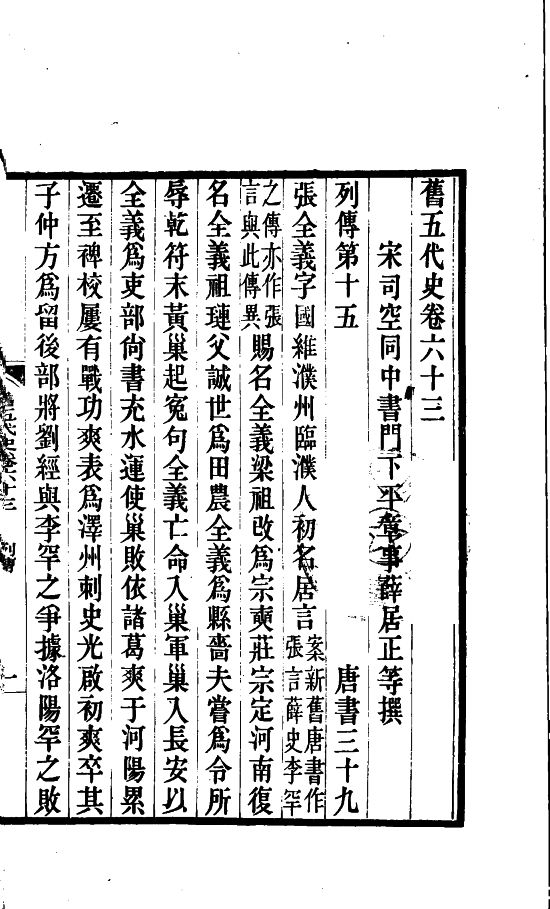 舊五代史卷六十三
宋司空同中書門下平章事薛居正等撰
列傳第十五 唐書三十九
張全義字國維濮州臨濮人初名居言案新舊唐書作張言薛史李罕
之傳亦作張言與此傳異賜名全義梁祖改爲宗奭莊宗定河南復
名全義祖璉父誠世爲田農全義爲縣嗇夫嘗爲令所
辱乾符末黃巢起冤句全義亡命入巢軍巢入長安以
全義爲吏部尙書充水運使巢敗依諸葛爽于河陽累
遷至裨校屢有戰功爽表爲澤州刺史光啟初爽卒其
子仲方爲留後部將劉經與李罕之爭據洛陽罕之敗
舊五代史卷六十三 列傳 一